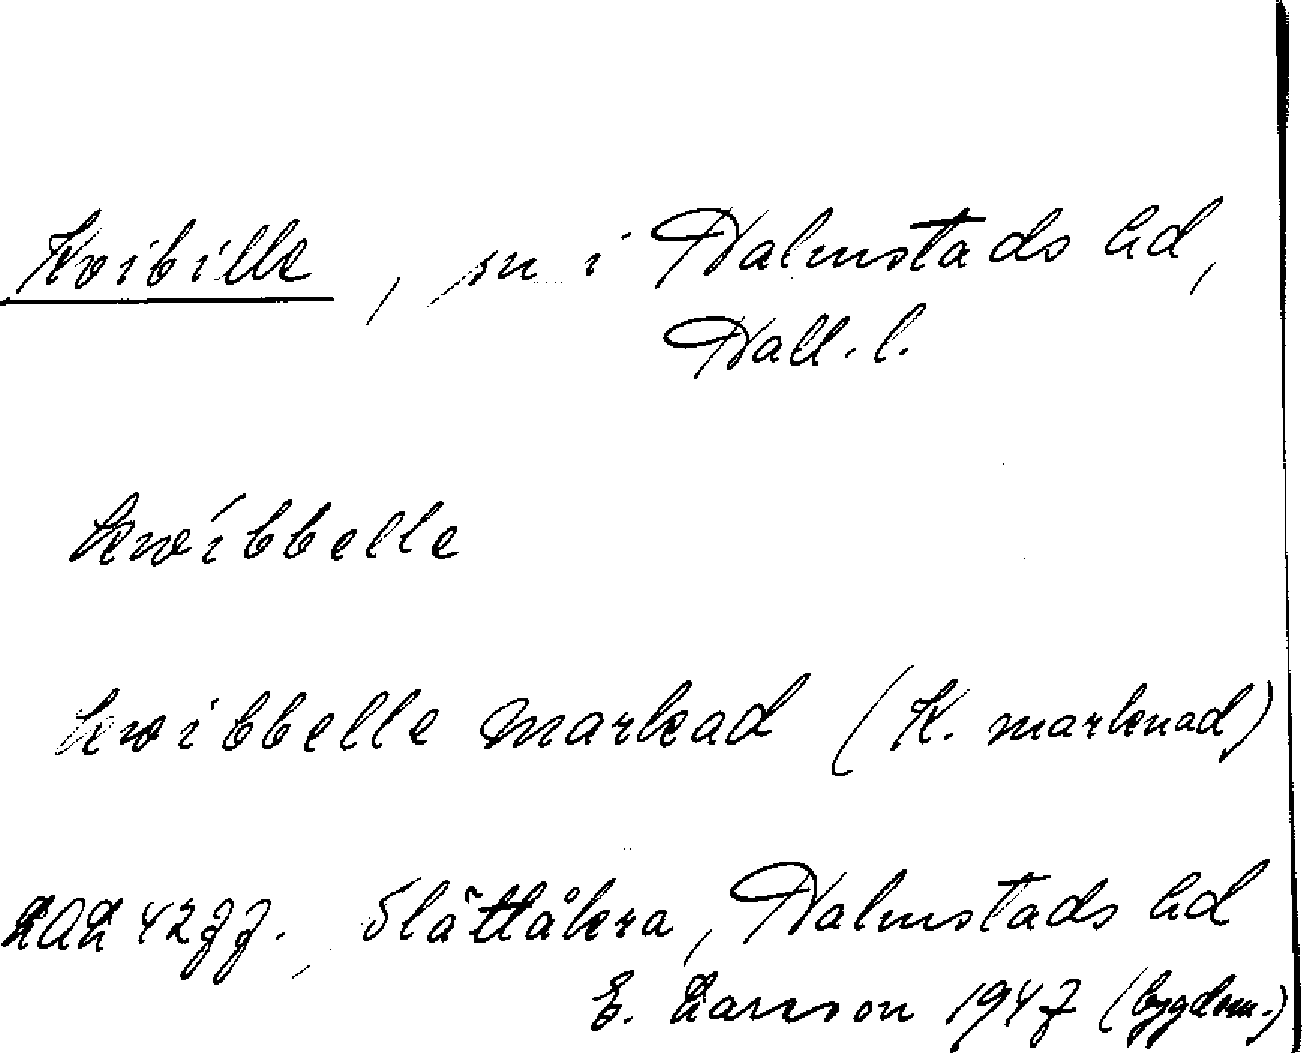 Kvibille, sn i Halmstads hd,
Hall. l.
kwíbbelle
kwibbelle markad (K. marknad)
LAL 4277. Slättåkra, Halmstads hd
E. Larsson 1947 (bygdem.)